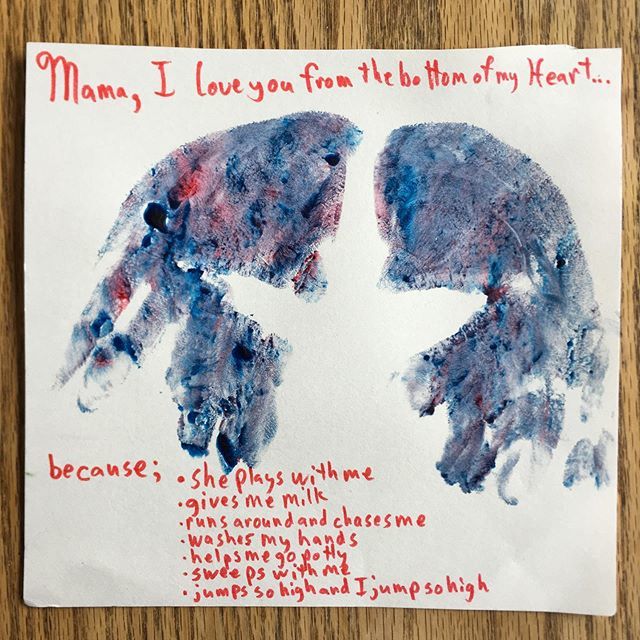 Mama, I love you from the bottom of my Heart...
because; • she plays with me
• gives me milk
• runs around and chases me
• washes my hands
• helps me go potty
• sweeps with me
• jumps so high and I jump so high